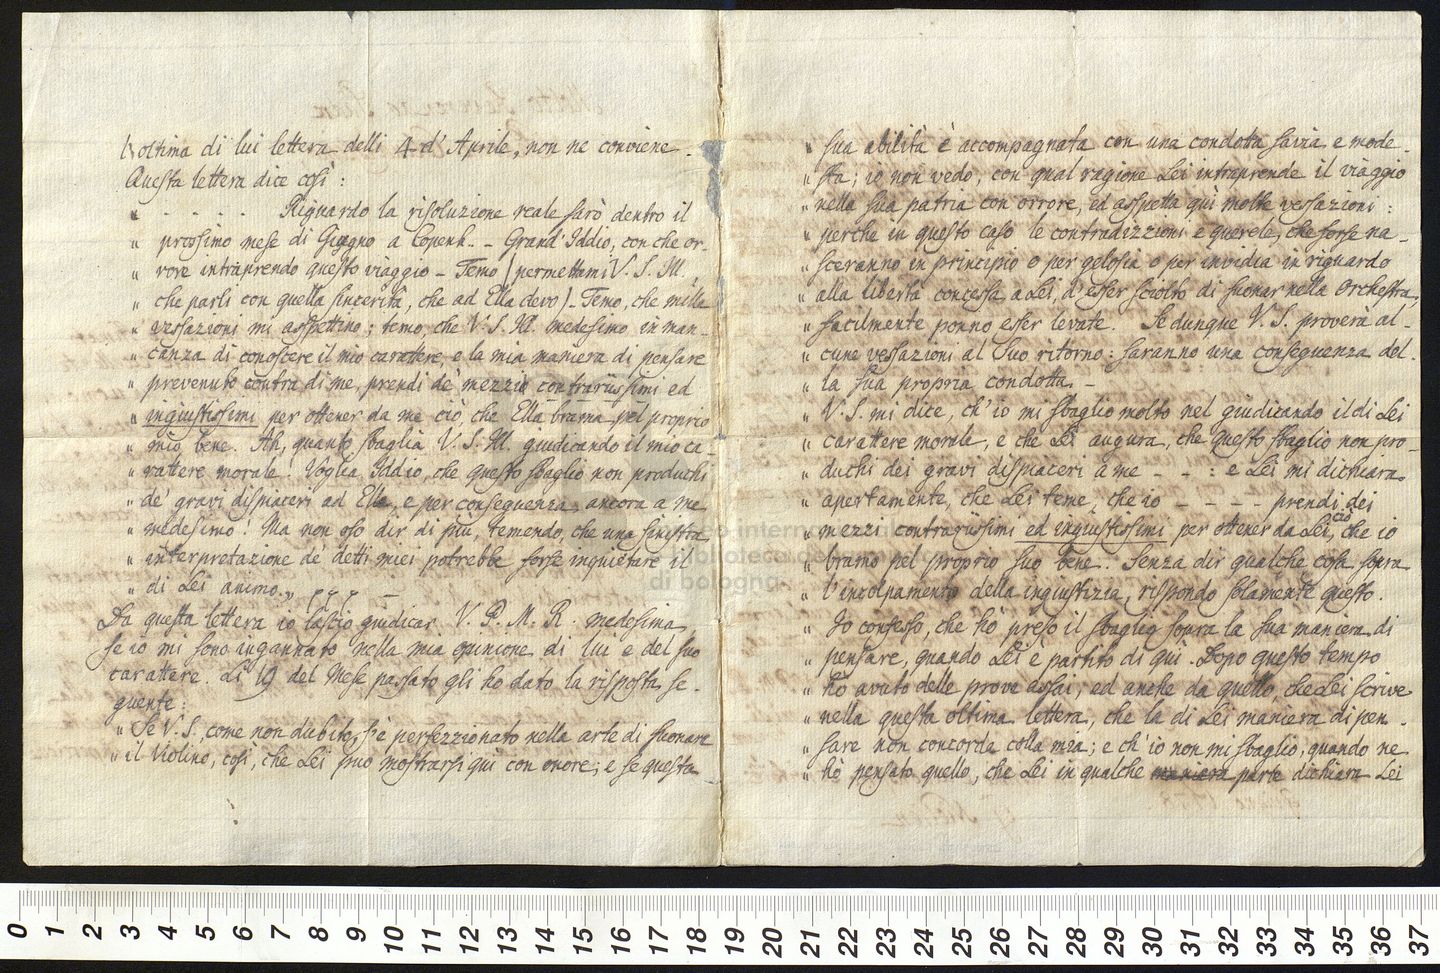 l'oltima di lui lettera delli 4 d'Aprile, non ne conviene.
Questa lettera dice così:
" . . . . . Riguardo la risoluzione reale sarò dentro il
" prossimo mese di Giugno a Copenh. - Grand' Iddio, con che or-
" rore intraprendo questo viaggio - Temo (permettami V. S. Ill.,
" che parli con quella sincerità, che ad Ella devo) - Temo, che milla
" vessazioni mi asspettino; temo, che V. S. Ill. medesimo in man-
" canza di conoscere il mio carattere e la mia maniera di pensare
" prevenuto contra di me, prendi de' mezzie contrariissimi ed
" ingiustissimi per ottener da me ciò, che Ella brama pel proprio
" mio bene. Ah, quanto sbaglia V. S. Ill. giudicando il mio ca-
" rattere morale! Voglia Iddio, che questo sbaglio non produchi
" de' gravi dispiaceri ad Ella, e per conseguenza ancora a me
" medesimo! Ma non oso dir di più, temendo, che una sinistra
" interpretazione de' detti miei potrebbe forse inquietare il
" di Lei animo. "
Da questa lettera io lascio giudicar V. P. M. R. medesima,
se io mi sono ingannato nella mia opinione di lui e del suo
carattere. Li 19 del Mese passato gli ho dato la risposta se-
guente:
" Se V. S., come non dubito, s'è perfezzionato nella arte di suonare
" il Violino, così, che Lei può mostrarsi quì con onore; e se questa
" sua abilità è accompagnata con una condotta savia e mode-
" sta; io non vedo, con qual ragione Lei intraprende il viaggio
" nella sua patria con orrore, ed asspetta quì molte vessazioni:
" perche in questo caso le contradizzioni e querele, che forse na-
" sceranno in principio o per gelosia o per invidia in riguardo
" alla libertà concessa a Lei, d'esser sciolto di suonar nella Orchestra,
" facilmente ponno esser levate. Se dunque V. S. proverà al-
" cune vessazioni al Suo ritorno: saranno una conseguenza del-
" la sua propria condotta. -
" V. S. mi dice, ch'io mi sbaglio molto nel giudicando il di Lei
" carattere morale, e che Lei augura, che questo sbaglio non pro-
" duchi dei gravi dispiaceri a me - - : e Lei mi dichiara
" apertamente, che Lei teme, che io - - - prendi dei
" mezzi contrariissimi ed ingiustissimi per ottener da Lei ciò, che io
" bramo pel proprio suo bene. Senza dir qualche cosa sopra
" l'incolpamento della ingiustizia, rispondo solamente questo.
" Io confesso, che hò preso il sbaglio sopra la sua maniera di
" pensare, quando Lei è partito di quì. Dopo questo tempo
" hò avuto delle prove assai, ed anche da quello, che Lei scrive
" nella questa oltima lettera, che la di Lei maniera di pen-
" sare non concorda colla mia; e ch'io non mi sbaglio, quando ne
" hò pensato quello, che Lei in qualche maniera parte dichiara Lei